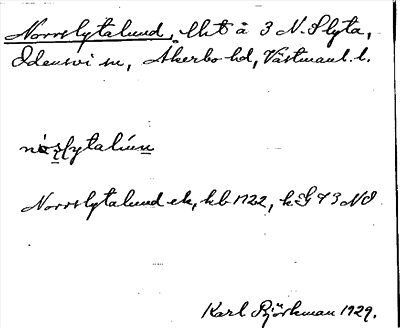 Norrslytalund, lht å 3 N. Slyta,
Odensvi sn, Åkerbo hd, Västmanl. l.
nórslytalúnn
Norrslytalund ek, kb 1722, kG 73 NO
Karl Björkman 1929.